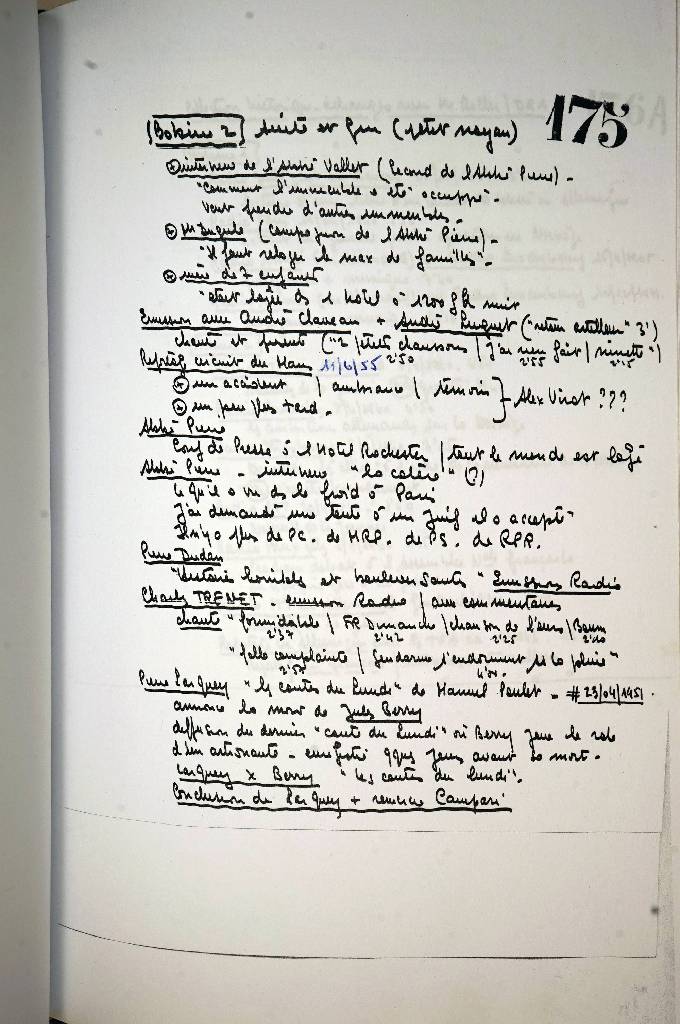 175
(Bobine 2) suite et fin (petit noyau)
⊗ interview de l'Abbé Vallet (Second de l'Abbé Pierre) -
"Comment l'immeuble a été occuppé" -
Veut prendre d'autres immeubles -
⊗ M (compagnon de l'Abbé Pierre) -
"Il faut reloger le max de familles" -
⊗ mère de 7 enfants
"était logée ds 1 hotel à 1200
Emission avec André Claveau + André Luguet (" " 3')
chante et (" 2 petits chaussons / J'ai rien fait / ninette ")
2'50 2'55 2'15
Reportg circuit du Mans 11/6/55
⊗ un accident / ambiance / témoin } Alex Virot ???
⊗ un peu plus tard -
Abbé Pierre
Conf de Presse à l Hotel Rochester / tout le monde est logé
Abbé Pierre - interview "la colère" (?)
Ce qu'il a vu ds le froid à Paris
J'ai demandé une tente à un Juif il a accepté
Il n'y a plus de PC. de MRP. de PS. de RPR.
Pierre Dudan
"Histoire horribles et bouleversantes" Emission Radio
Charles TRENET - emission Radio / avec commentaires
chante "formidable / FR Dimanche / chanson de l'ours / Boum
2'37 2'42 2'25 2'10
"folle complainte / Gendarme s'endorment ss la pluie"
2'54
Pierre Larquey "les contes du Lundi" de - # 23/04/1951.
annonce la mort de Jules Berry
diffusion du dernier "conte du Lundi" où Berry joue le role
d'un astronaute - enregistré qques jours avant sa mort -
Larquey x Berry "les contes du lundi".
Conclusion de Larquey + remercie Campari